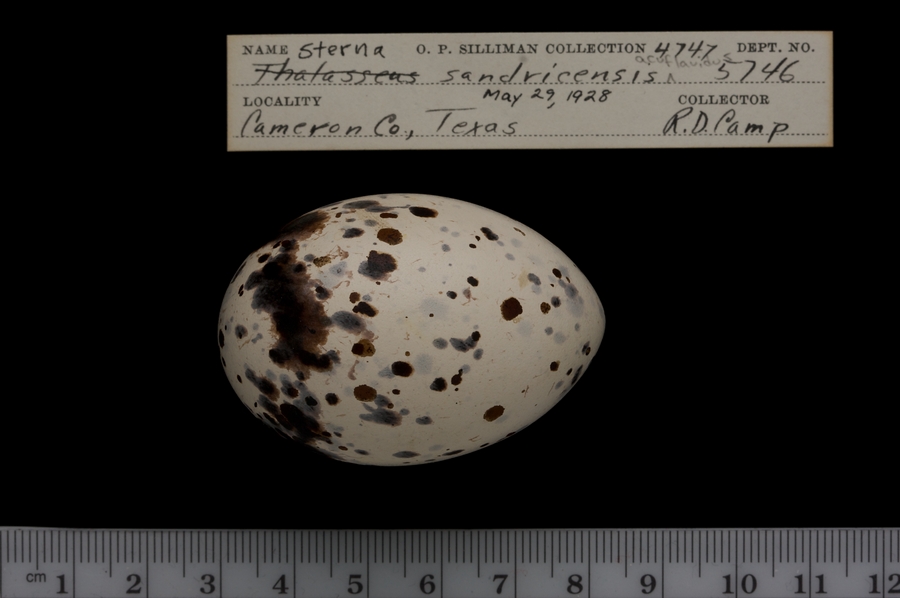 NAME Sterna O. P. SILLIMAN COLLECTION 4747 DEPT. NO.
Thalasseus sandvicensis ^ acuflavidus 5746
LOCALITY May 29, 1928 COLLECTOR
Cameron Co., Texas R.D. Camp
cm 1 2 3 4 5 6 7 8 9 10 11 12